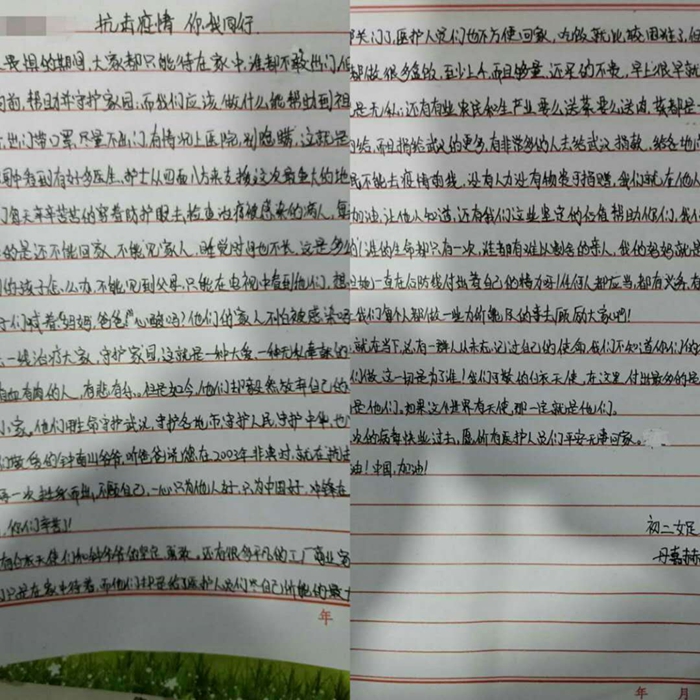 抗击疫情 你我同行
畏惧的期间,大家都只能待在家中,谁都不敢出门
帮助并守护家园;而我们应该做什么能帮助到祖
出门带口罩,尽量不出门,有情况上医院,别隐瞒,这就是
看到有好多医生、护士从四面八方来支援这次最重大的地
们每天辛辛苦苦的穿着防护服去检查治疗被感染的病人,每
的是还不能回家,不能见家人,睡觉时间也不长,这是多么
的孩子怎么办,不能见到父母,只能在电视中看到他们,想
子们喊着“妈妈,爸爸”心酸吗?他们的家人不怕被感染吗
一线治疗大家,守护家园,这就是一种大爱,一种无私奉献的
血有肉的人,有悲有喜。但是如今,他们却毅然放弃自己的
小家。他们用生命守护武汉,守护各地市,守护人民,守护中华,也
们敬爱的钟南山爷爷,听爸爸说您在2003年非典时,就在
再一次挺身而出,不顾自己,一心只为他人好,只为中国好,冲锋在
你们辛苦!
白衣天使们和钟爷爷的坚定勇敢,还有很多平凡的工厂商业家
只是在家中待着,而他们却是给了医护人员们尽自己所能的最
年
关门了,医护人员们也不方便回家,吃饭就比较困难了,但
都做很多盒饭,至少上千,而且够量,还买的不贵,早上很早就
是无私;还有有些农民和生产业要么送菜要么送肉,我都是
而且捐给武汉的更多,有非常多的人去给武汉捐款,给各地
不能去疫情前线,没有人力没有物资可捐赠,我们就在他人
加油,让他人知道,还有我们这些坚定的信有帮助你们,我们
谁的生命都只有一次,谁都有难以割舍的亲人,我的妈妈就是
她一直在心防线付出着自己的精力,任何人都应当,都有义务,有
我们每个人都做一些力所能及的事去鼓励大家吧!
就在当下,总有一群人从未忘记过自己的使命,我们不知道你们的
们做,这一切是为了谁!我们可敬的白衣天使,在这里,付出最多的是
是他们。如果这个世界有天使,那一定就是他们。
次的病毒快些过去,愿所有医护人员们平安无事回家。
油!中国,加油!
初二
年 月